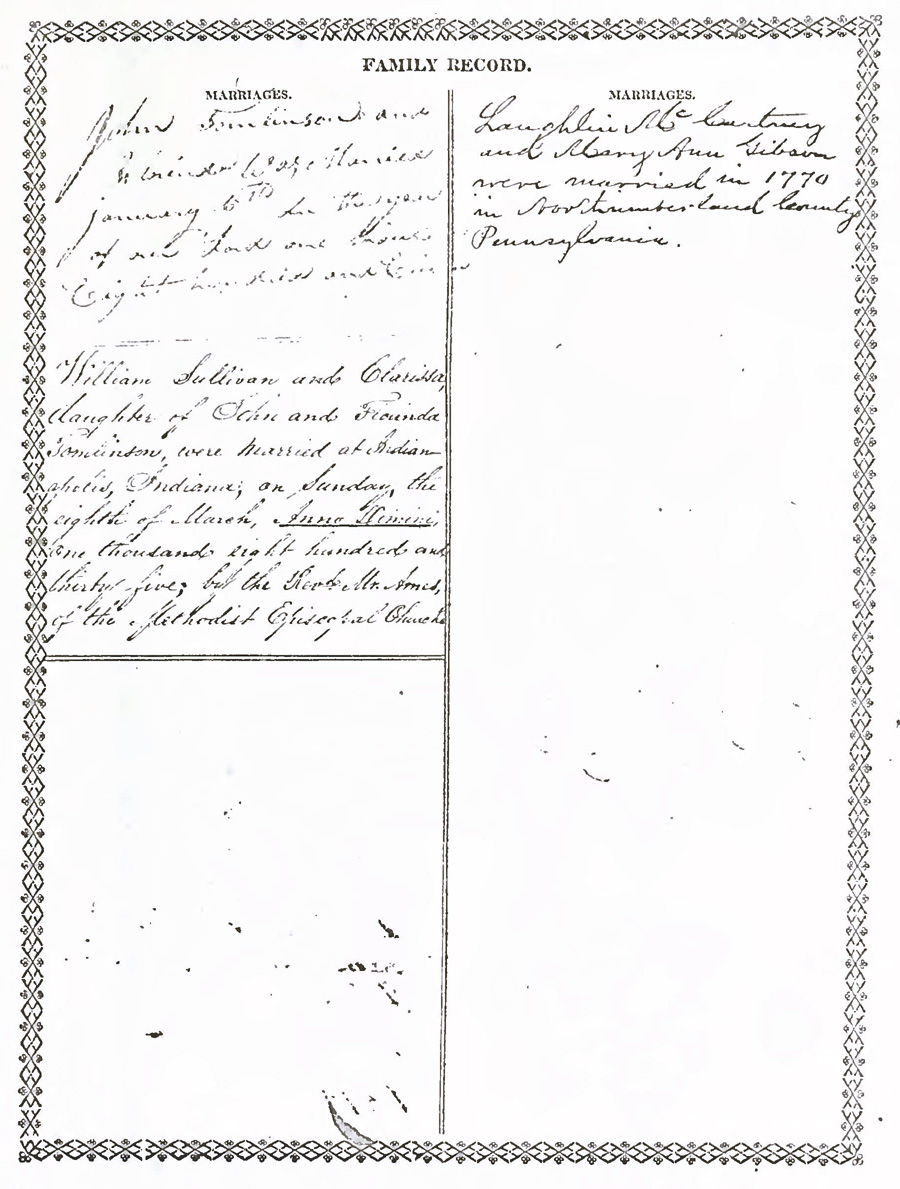 FAMILY RECORD.
MARRIAGES.
John Tomlinson and
was Married
january 6th In the year
of our Lord one
Eight hundred and
William Sullivan and Clarissa,
daughter of John and
Tomlinson, were married at Indian-
apolis, Indiana; on Sunday, the
eighth of March, Anno Dimini,
one thousand eight hundred and
thirty five; by the Revd. Mr. Ames,
of the Methodist Episcopal Church
MARRIAGES.
Laughlin Mc Cartney
and Mary Ann Gibson
were married in 1770
in Northumberland County
Pennsylvania.